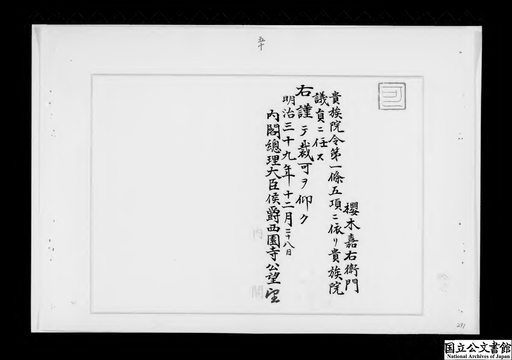 回
櫻木嘉右衛門
貴族院令第一條五項ニ依リ貴族院
議員ニ任ス
右謹テ裁可ヲ仰ク
明治三十九年十二月二十八日
内閣總理大臣侯爵西園寺公望
内
閣
国立公文書館
National Archives of Japan